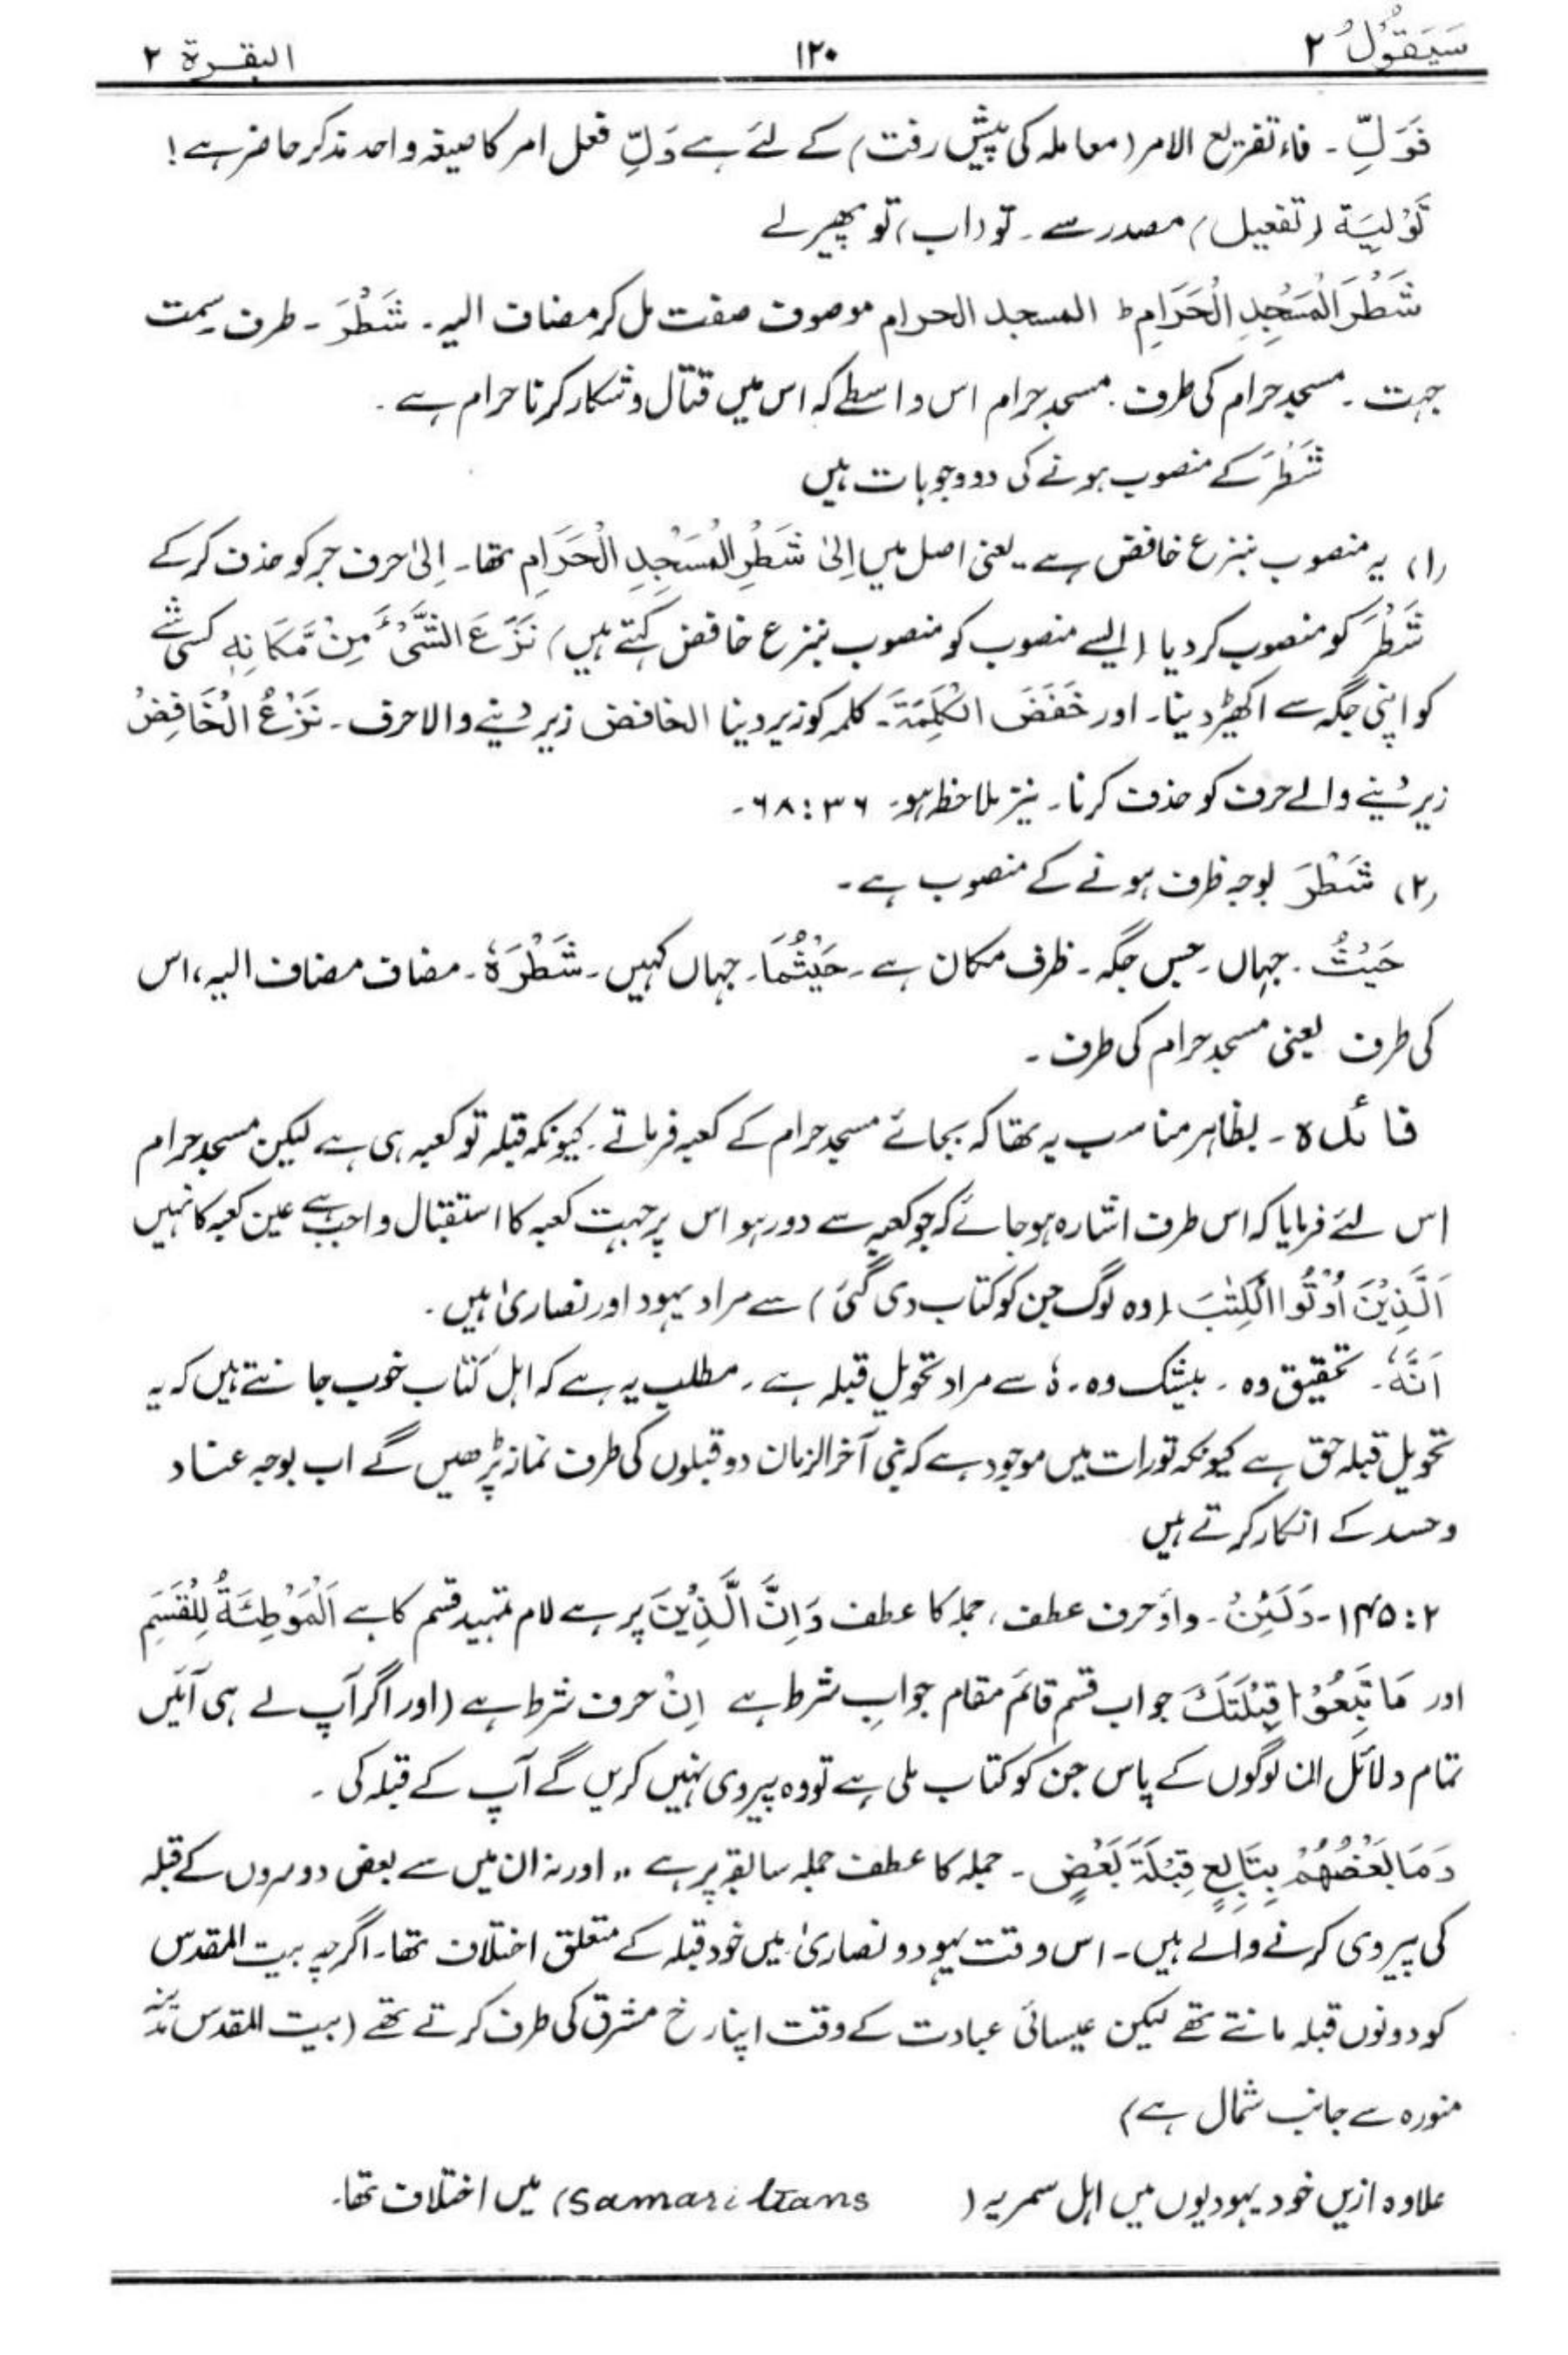 سَيَقُوْلُ ٢ ١٢٠ البقرة ٢
فَوَلِّ ۔ فاء تفریع الامر (معاملہ کی پیش رفت) کے لئے ہے وَلِّ فعل امر کا صیغہ واحد مذکر حاضر ہے !
تَوْلِیَۃ (تفعیل) مصدر سے ۔ تو (اب) تو پھیر لے
شَطْرَ الْمَسْجِدِ الْحَرَامِ ط المسجد الحرام موصوف صفت مل کر مضاف الیہ ۔ شَطْرَ ۔ طرف سمت
جہت ۔ مسجد حرام کی طرف ۔ مسجد حرام اس واسطے کہ اس میں قتال و شکار کرنا حرام ہے ۔
شَطْرَ کے منصوب ہونے کی دو وجوہات ہیں
(۱) یہ منصوب بنزع خافض ہے ۔ یعنی اصل میں اِلیٰ شَطْرِ الْمَسْجِدِ الْحَرَامِ تھا ۔ اِلیٰ حرف جر کو حذف کر کے
شَطْرَ کو منصوب کر دیا (ایسے منصوب کو منصوب بنزع خافض کہتے ہیں) نَزَعَ الشَّیْءَ مِنْ مَّکَانِہٖ کسی شے
کو اپنی جگہ سے اکھیڑ دینا ۔ اور خَفَضَ الْکَلِمَۃَ ۔ کلمہ کو زیر دینا الخافض زیر دینے والا حرف ۔ نَزْعُ الْخَافِضُ
زیر دینے والے حرف کو حذف کرنا ۔ نیز ملاحظہ ہو ۔ ۳۶ : ۶۸ ۔
(۲) شَطْرَ بوجہ ظرف ہونے کے منصوب ہے ۔
حَیْثُ ۔ جہاں ۔ جس جگہ ۔ ظرف مکان ہے ۔ حَیْثُمَا ۔ جہاں کہیں ۔ شَطْرَہٗ ۔ مضاف مضاف الیہ ، اس
کی طرف یعنی مسجد حرام کی طرف ۔
فائدہ ۔ بظاہر مناسب یہ تھا کہ بجائے مسجد حرام کے کعبہ فرماتے ۔ کیونکہ قبلہ تو کعبہ ہی ہے لیکن مسجد حرام
اس لئے فرمایا کہ اس طرف اشارہ ہو جائے کہ جو کعبہ سے دور ہو اس پر جہت کعبہ کا استقبال واجب ہے عین کعبہ کا نہیں
اَلَّذِیْنَ اُوْتُوا الْکِتٰبَ (وہ لوگ جن کو کتاب دی گئی) سے مراد یہود اور نصاریٰ ہیں ۔
اَنَّہٗ ۔ تحقیق وہ ۔ بیشک وہ ۔ ہٗ سے مراد تحویل قبلہ ہے ۔ مطلب یہ ہے کہ اہل کتاب خوب جانتے ہیں کہ یہ
تحویل قبلہ حق ہے کیونکہ تورات میں موجود ہے کہ نبی آخر الزمان دو قبلوں کی طرف نماز پڑھیں گے اب بوجہ عناد
و حسد کے انکار کرتے ہیں
۲ : ۱۴۵ ۔ وَلَئِنْ ۔ واؤ حرف عطف ، جملہ کا عطف وَاِنَّ الَّذِیْنَ پر ہے لام تمہید قسم کا ہے اَلْمَوْطِئَۃُ لِلْقَسَمِ
اور مَا تَبِعُوْا قِبْلَتَکَ جواب قسم قائم مقام جوابِ شرط ہے اِنْ حرف شرط ہے (اور اگر آپ لے ہی آئیں
تمام دلائل ان لوگوں کے پاس جن کو کتاب ملی ہے تو وہ پیروی نہیں کریں گے آپ کے قبلہ کی ۔
وَمَا بَعْضُھُمْ بِتَابِعٍ قِبْلَۃَ بَعْضٍ ۔ جملہ کا عطف جملہ سابقہ پر ہے ،، اور نہ ان میں سے بعض دوسروں کے قبلہ
کی پیروی کرنے والے ہیں ۔ اس وقت یہود و نصاریٰ میں خود قبلہ کے متعلق اختلاف تھا ۔ اگرچہ بیت المقدس
کو دونوں قبلہ مانتے تھے لیکن عیسائی عبادت کے وقت اپنا رخ مشرق کی طرف کرتے تھے (بیت المقدس مدینہ
منورہ سے جانب شمال ہے)
علاوہ ازیں خود یہودیوں میں اہل سمریہ (Samaritans) میں اختلاف تھا ۔